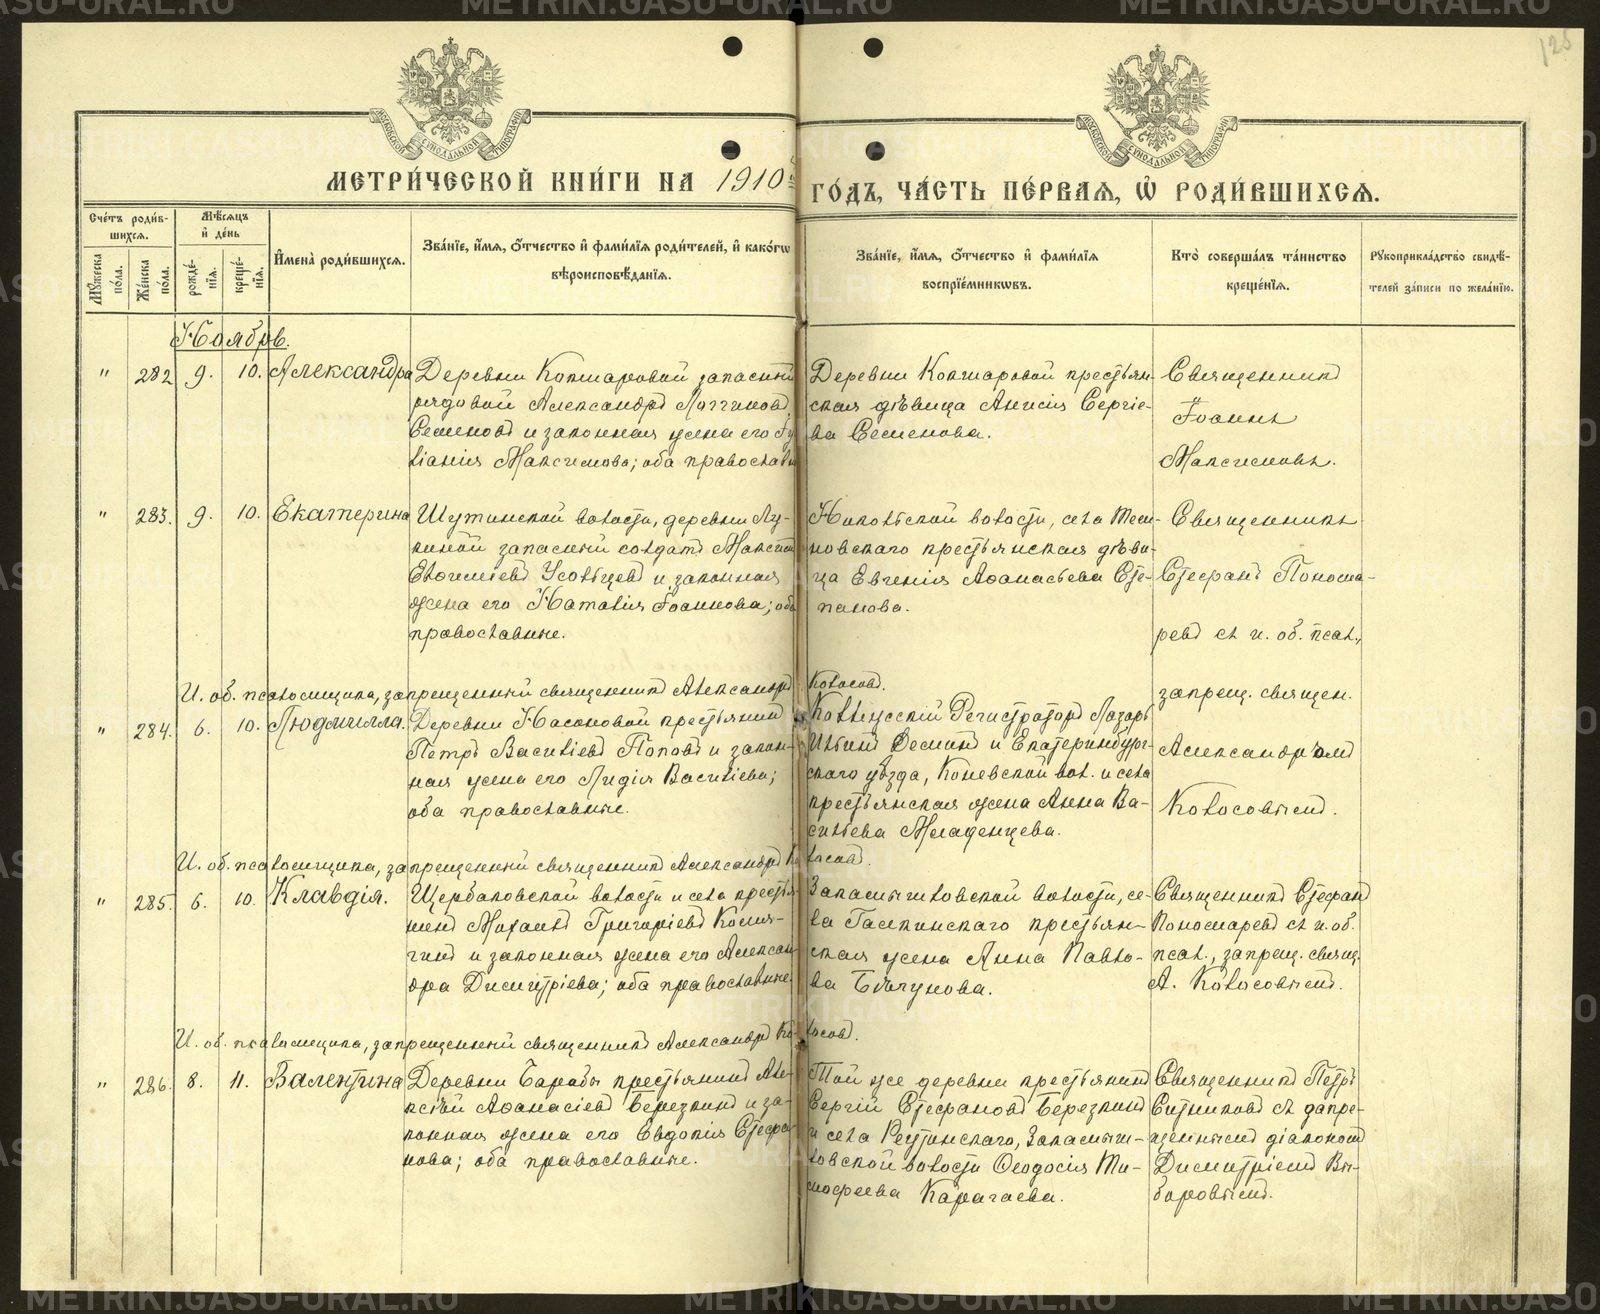 METRIKI.GASU-URAL.RU
125
МОСКОВСКОЙ СѴНОДАЛЬНОЙ ТИПОГРАФІИ
МОСКОВСКОЙ СѴНОДАЛЬНОЙ ТИПОГРАФІИ
МЕТРИ́ЧЕСКОЙ КНИ́ГИ НА 1910й
ГО́ДЪ, ЧА́СТЬ ПЕ́РВАѦ, Ѡ҆ РОДИ́ВШИХСѦ.
Сче́тъ роди́в-
шихсѧ.
Мꙋ́жеска по́ла.
Же́нска по́ла.
Мѣ́сѧцъ
и҆ де́нь
рожде́-
нїѧ.
креще́-
нїѧ.
И҆мена̀ роди́вшихсѧ.
Зва́нїе, и҆́мѧ, ѻ҆́тчество и҆ фами́лїѧ роди́телей, и҆ како́гѡ
вѣроисповѣ́данїѧ.
Зва́нїе, и҆́мѧ, ѻ҆́тчество и҆ фами́лїѧ
воспрїе́мникѡвъ.
Кто̀ соверша́лъ та́инство
креще́нїѧ.
Рꙋкоприкла́дство свидѣ́-
телей за́писи по жела́нїю.
Ноябрь.
" 282 9. 10. Александра
Деревни Кокшаровой запасный
рядовой Александръ Логгиновъ
Семеновъ и законная жена его
Максимова; оба православн
Деревни Кокшаровой крестьян-
ская дѣвица Анисія Сергіе-
ва Семенова.
Священникъ
Іоаннъ
Максимовъ.
" 283. 9. 10. Екатерина
Шутинской волости, деревни Лу-
киной запасный солдатъ Максимъ
Евфиміевъ Усольцевъ и законная
жена его Наталія Іоаннова; оба
православные.
волости, села
новскаго крестьянская дѣви-
ца Евгенія Аѳанасьева Сте-
панова.
Священникъ
Стефанъ Понома-
ревъ съ и. об. псал.,
запрещ. священ.
Александромъ
Колосовымъ.
И. об. псаломщика, запрещенный священникъ Александръ Колосовъ.
" 284. 6. 10. Людмилла.
Деревни Насоновой крестьянинъ
Петръ Василіевъ Поповъ и закон-
ная жена его Лидія Василіева;
оба православные.
Коллежскій Регистраторъ Лазарь
Ильинъ Деминъ и Екатеринбург-
скаго уѣзда, Коневской вол. и села
крестьянская жена Анна Ва-
сильева Младенцева.
И. об. псаломщика, запрещенный священникъ Александръ Колосовъ.
" 285. 6. 10. Клавдія.
Щербаковской волости и села крестья-
нинъ Михаилъ Григоріевъ Комя-
гинъ и законная жена его Алексан-
дра Димитріева; оба православные.
Закамышловской волости, се-
ла Гаскинскаго крестьян-
ская жена Анна Павло-
ва Бѣгунова.
Священникъ Стефанъ
Пономаревъ съ и. об.
псал., запрещ. священ.
А. Колосовымъ.
И. об. псаломщика, запрещенный священникъ Александръ Колосовъ.
" 286. 8. 11. Валентина
Деревни Барабы крестьянинъ Але-
ксѣй Аѳанасіевъ Березкинъ и за-
конная жена его Евдокія Стефа-
нова; оба православные.
Той же деревни крестьянинъ
Сергій Стефановъ Березкинъ
и села Реутинскаго, Закамыш-
ловской волости Ѳеодосія Ти-
моѳеева Карагаева.
Священникъ Петръ
Ситниковъ съ запре-
щеннымъ діакономъ
Димитріемъ Вы-
боровымъ.